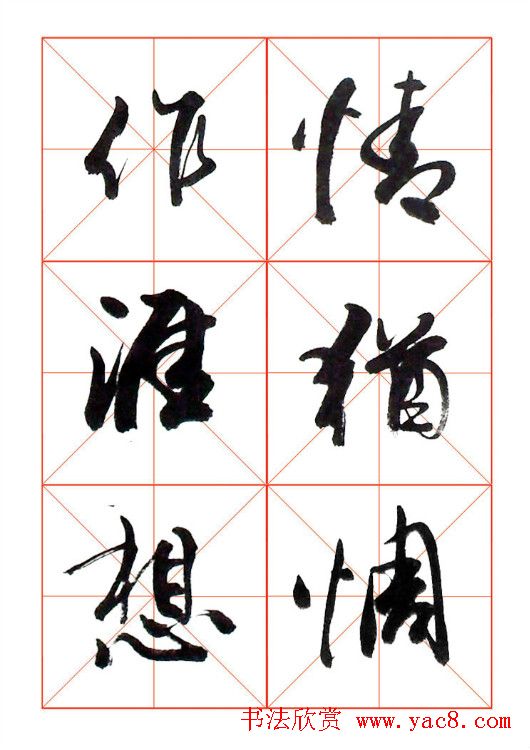 情猶惆
作淮想
书法欣赏 www.yac8.com